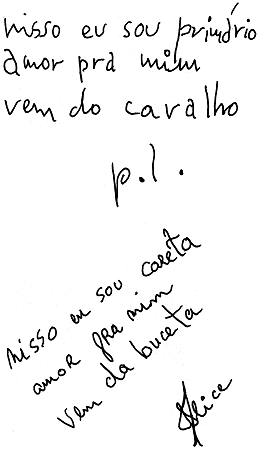 nisso eu sou primário
amor pra mim
vem do carvalho
p.l.
nisso eu sou careta
amor pra mim
vem da buceta
Alice